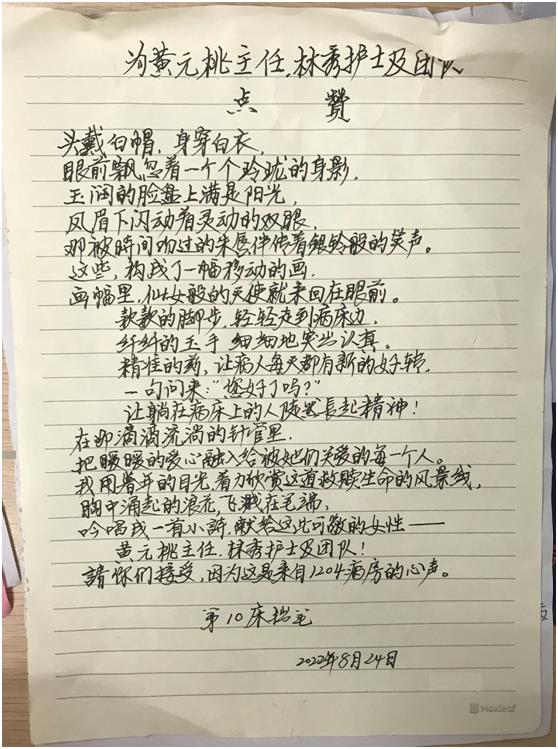 为黄元桃主任.林秀护士及团队
点 赞
头戴白帽，身穿白衣，
眼前飘忽着一个个玲珑的身影，
玉润的脸盘上满是阳光，
凤眉下闪动着灵动的双眼，
那被时间吻过的朱唇伴传着银铃般的笑声。
这些，构成了一幅移动的画.
画幅里，仙女般的天使就来回在眼前。
款款的脚步，轻轻走到病床边，
纤纤的玉手 细细地突出认真。
精准的药，让病人每天都有新的好转，
一句问来：“您好了吗？”
让躺在病床上的人陡罢長起精神！
在那滴滴流淌的针管里
把暖暖的爱心融入给被她们关爱的每一个人。
我用昔年的目光，着力欣赏这道救赎生命的风景线，
胸中涌起的浪花，飞溅在笔端，
吟唱成一首小詩，献给这些可敬的女性——
黄元桃主任.林秀护士及团队！
請你们接受，因为这是来自1204病房的心声。
第10床拙笔
2022年8月24日
Maxleaf